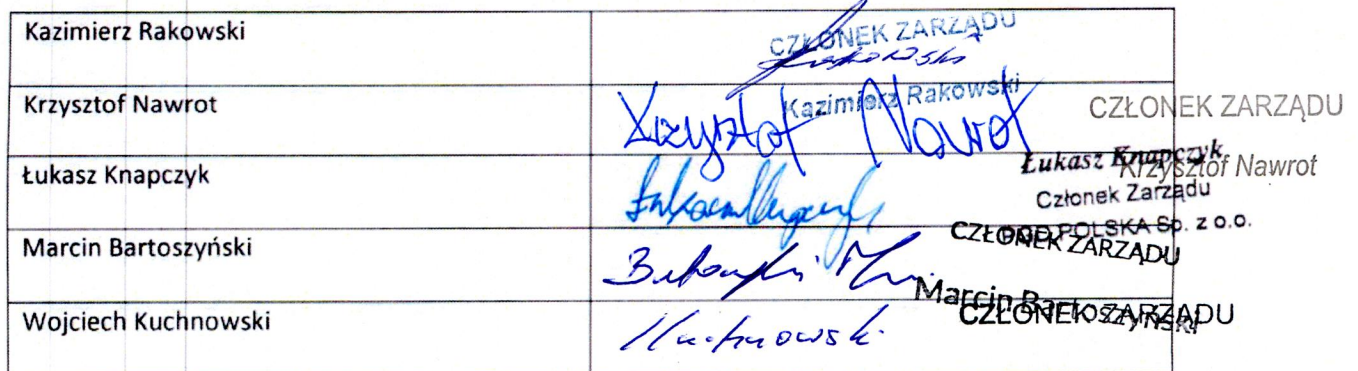 Kazimierz Rakowski
CZŁONEK ZARZĄDU
Rakowski
Kazimierz Rakowski
Krzysztof Nawrot
Krzysztof Nawrot
CZŁONEK ZARZĄDU
Krzysztof Nawrot
Łukasz Knapczyk
Łukasz Knapczyk
Członek Zarządu
POLSKA Sp. z o.o.
Marcin Bartoszyński
CZŁONEK ZARZĄDU
Marcin Bartoszyński
Wojciech Kuchnowski
Kuchnowski
CZŁONEK ZARZĄDU